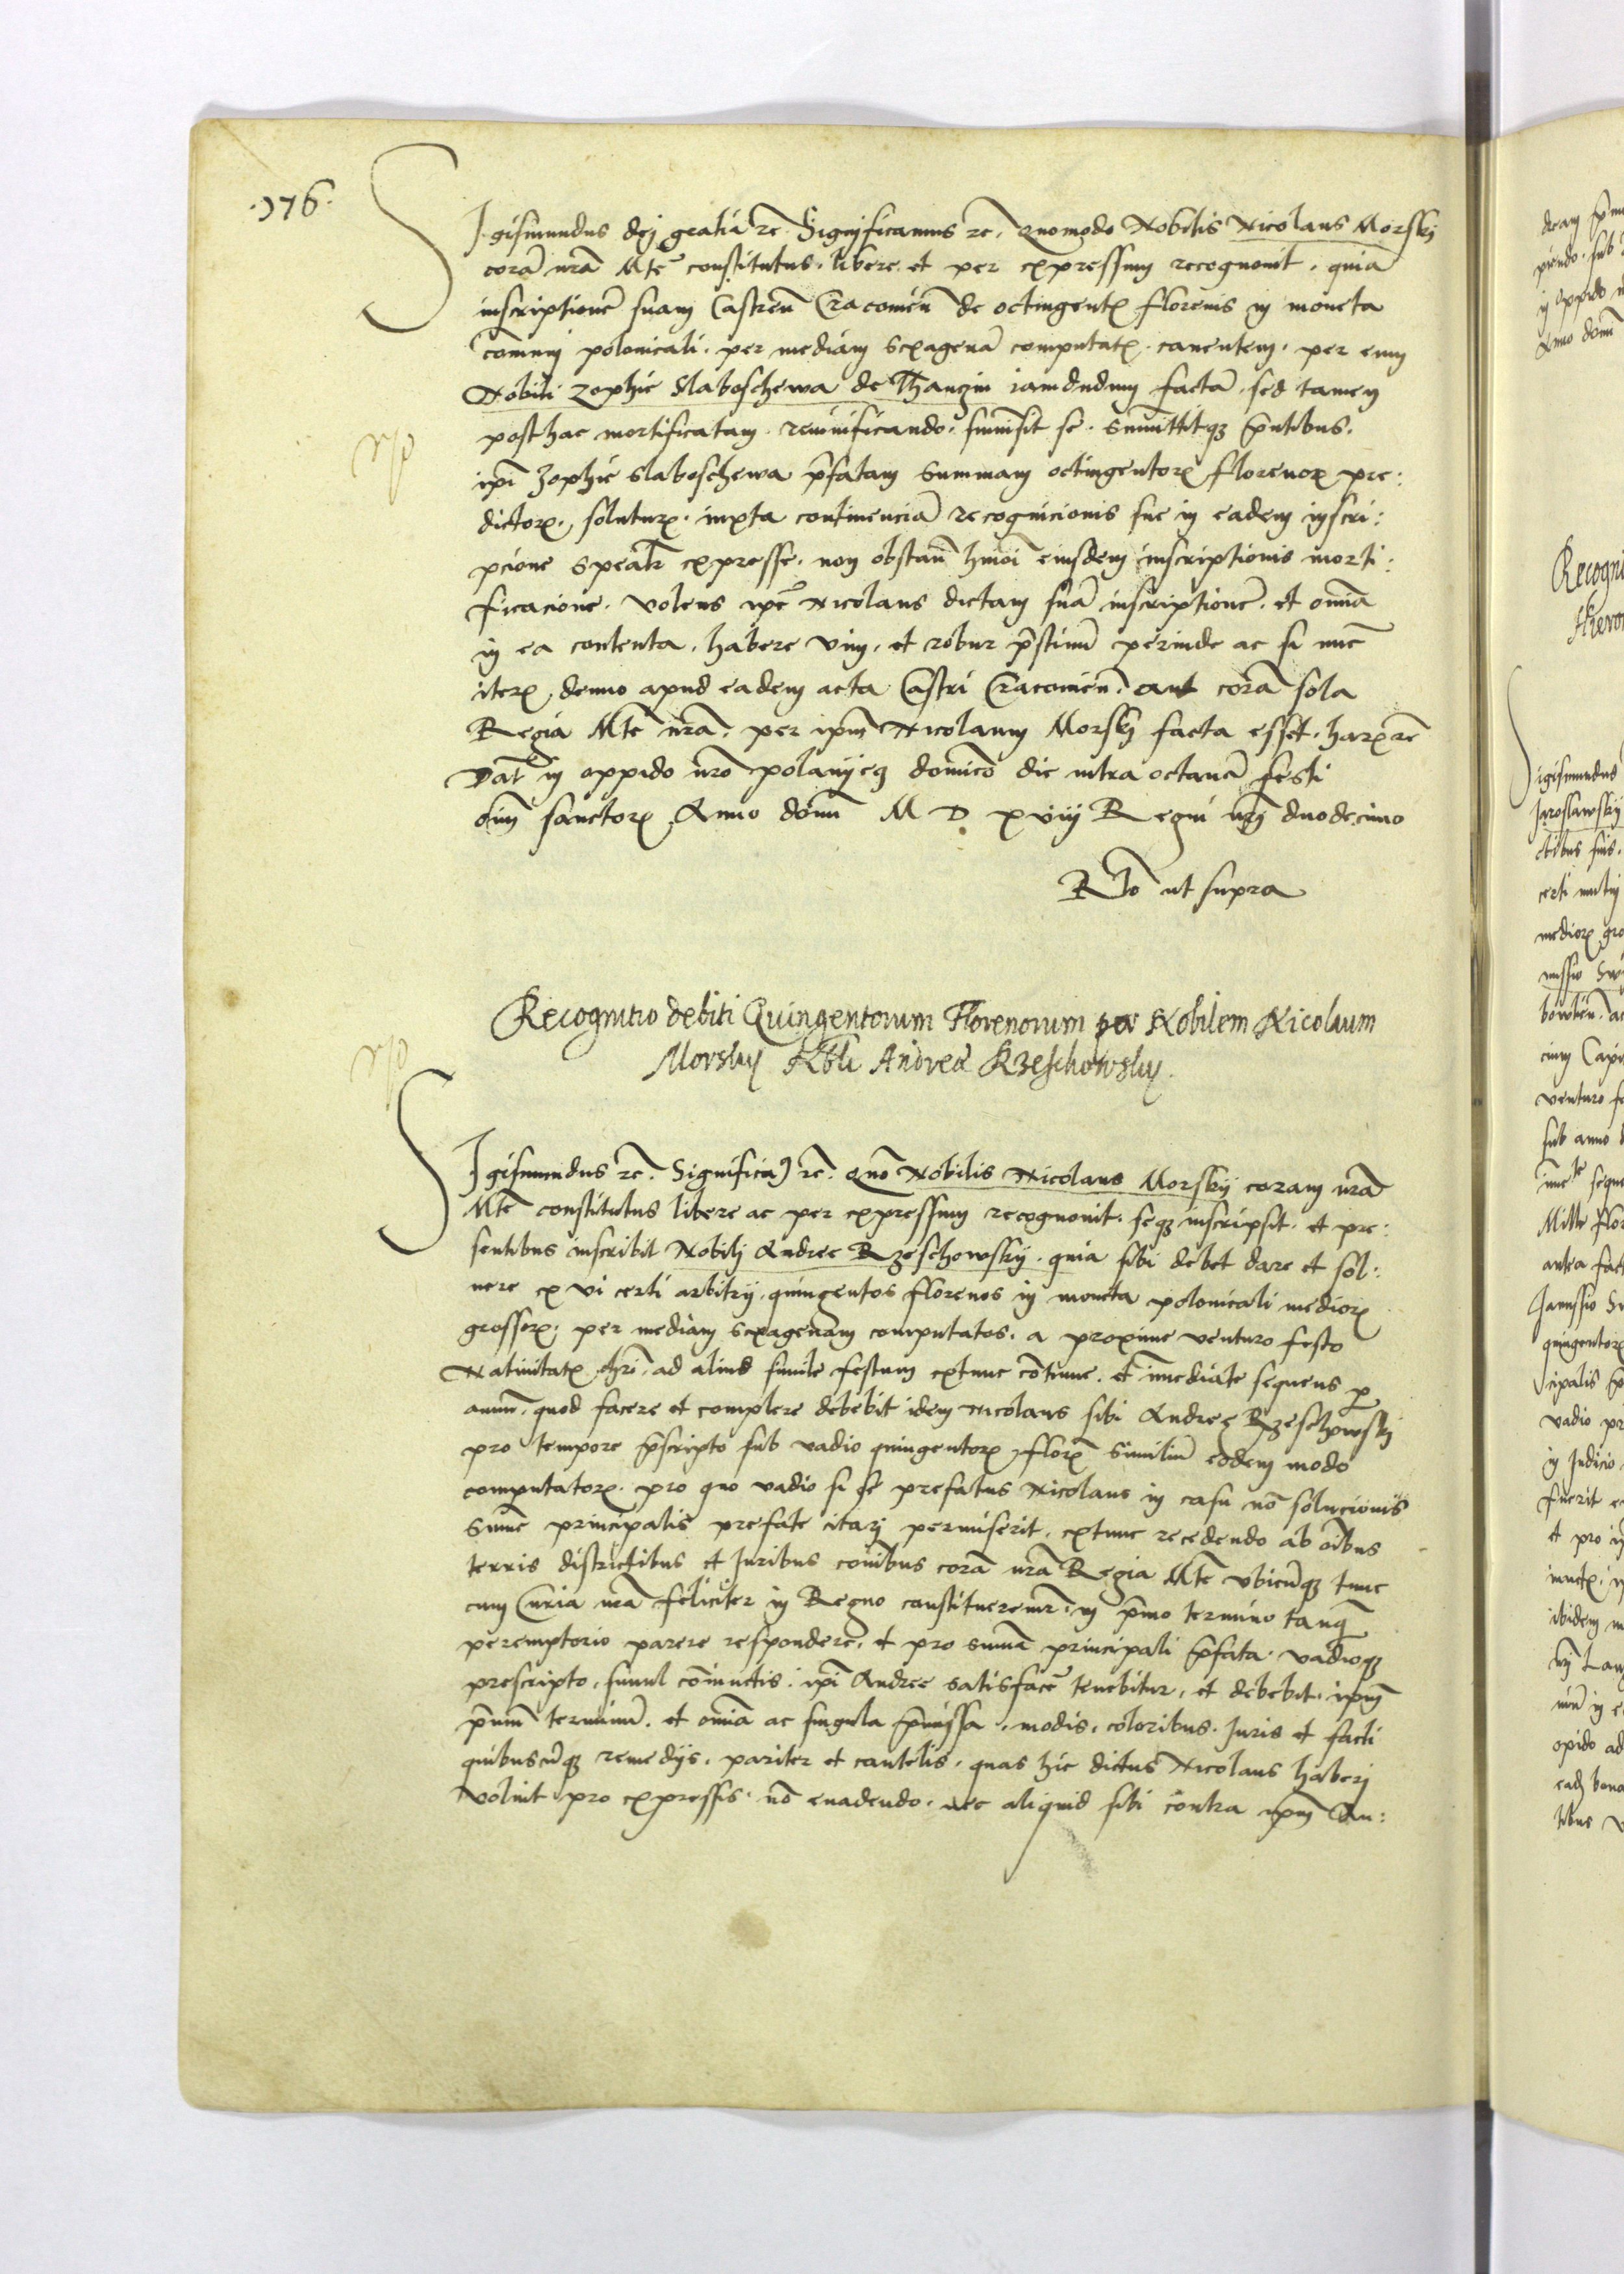 .176.
SIgismundus dej gratia rc̃. Significamus rc̃. Quomodo Nobilis Nicolaus Morskj
corã nrã Mte͂ constitutus. libere et per expressum recognovit. quia
inscriptione͂ suam Castren͂ Cracouien͂ de octingentꝭ florenis in moneta
co͂muni polonicali. per mediam sexagena͂ computatꝭ. cauentem. per eum
Nobili Zophie Slaboschewa de Thanczin iamdudum facta͂. sed tamen
post hac mortificatam. reuiuificando. su͂misit se. su͂mittitqꝫ pn͂tibus.
ipi͂ Zophie Slaboschewa p͂fatam Summam octingentorꝭ florenorꝭ pre:
dictorꝭ. soluturꝭ. iuxta continencia͂ recognicionis sue in eadem inscri:
pcione Spealr͂ expresse. non obstan͂ hm͂oi eiusdem inscriptionis morti:
ficacione. Volens ipe͂ Nicolaus dictam sua͂ inscriptione͂. et om͂ia
in ea contenta. habere vim. et robur p͂stinu͂ perinde ac si nu͂c
iterꝭ denuo apud eadem acta Castri Cracouien͂. aut cora͂ sola
Regia Mte͂ nrã. per ipm͂ Nicolaum Morskj facta esset. harꝭ rc̃
Dat͂ in oppido nr͂o polanyecz domi͂co die intra octaua͂ festi
om͂i͂ sanctorꝭ Anno dom͂ M D xviij Regni nr͂j duodecimo
Rl͂o ut supra
Recognitio debiti Quingentorum Florenorum per Nobilem Nicolaum
Morskij Nobli Andreæ Rzeschowskij.
SIgismundus rc̃. Significa) rc̃. Quo͂ Nobilis Nicolaus Morskij coram nrã
Mte͂ constitutus libere ac per expressum recognouit. seqꝫ inscripsit. et pre:
sentibus inscribit Nobilj Andree Rzeschowskij. quia sibi debet dare et sol:
uere ex vi certi arbitrij. quingentos florenos in moneta polonicali mediorꝭ
grossorꝭ. per mediam sexagenam computatos. a proxime venturo festo
Natiuitatꝭ chri͂. ad aliud simile festum extunc co͂tinue. et im͂ediate sequens p̱
annu͂. quod facere et complere debebit idem Nicolaus sibi Andree Rzeschowskj
pro tempore p͂scripto sub vadio quingentorꝭ florꝭ similiu͂ eodem modo
computatorꝭ. pro quo vadio si se prefatus Nicolaus in casu no͂ solucionis
Sum͂e principalis prefate citarj permiserit. extunc recedendo ab oi͂bus
terris districtibus et Juribus coi͂bus cora͂ nrã Regia Mte͂ vbicu͂qꝫ tunc
cum Curia nrã feliciter in Regno constitueremr͂. in p͂mo termino tanq͂
peremptorio parere respondere. et pro sum͂a principali p͂fata. vadioqꝫ
prescripto, simul co͂iunctis. ipi͂ Andree satisface͂ tenebitur, et debebit. ipm͂
p͂mum terminu͂. et om͂ia ac singula p͂missa. modis, coloribus. Juris et facti
quibuscu͂qꝫ remedijs. pariter et cautelis. quas hic dictus Nicolaus haberj
voluit pro expressis. no͂ euadendo. nec aliquid sibi contra ipm͂ An: